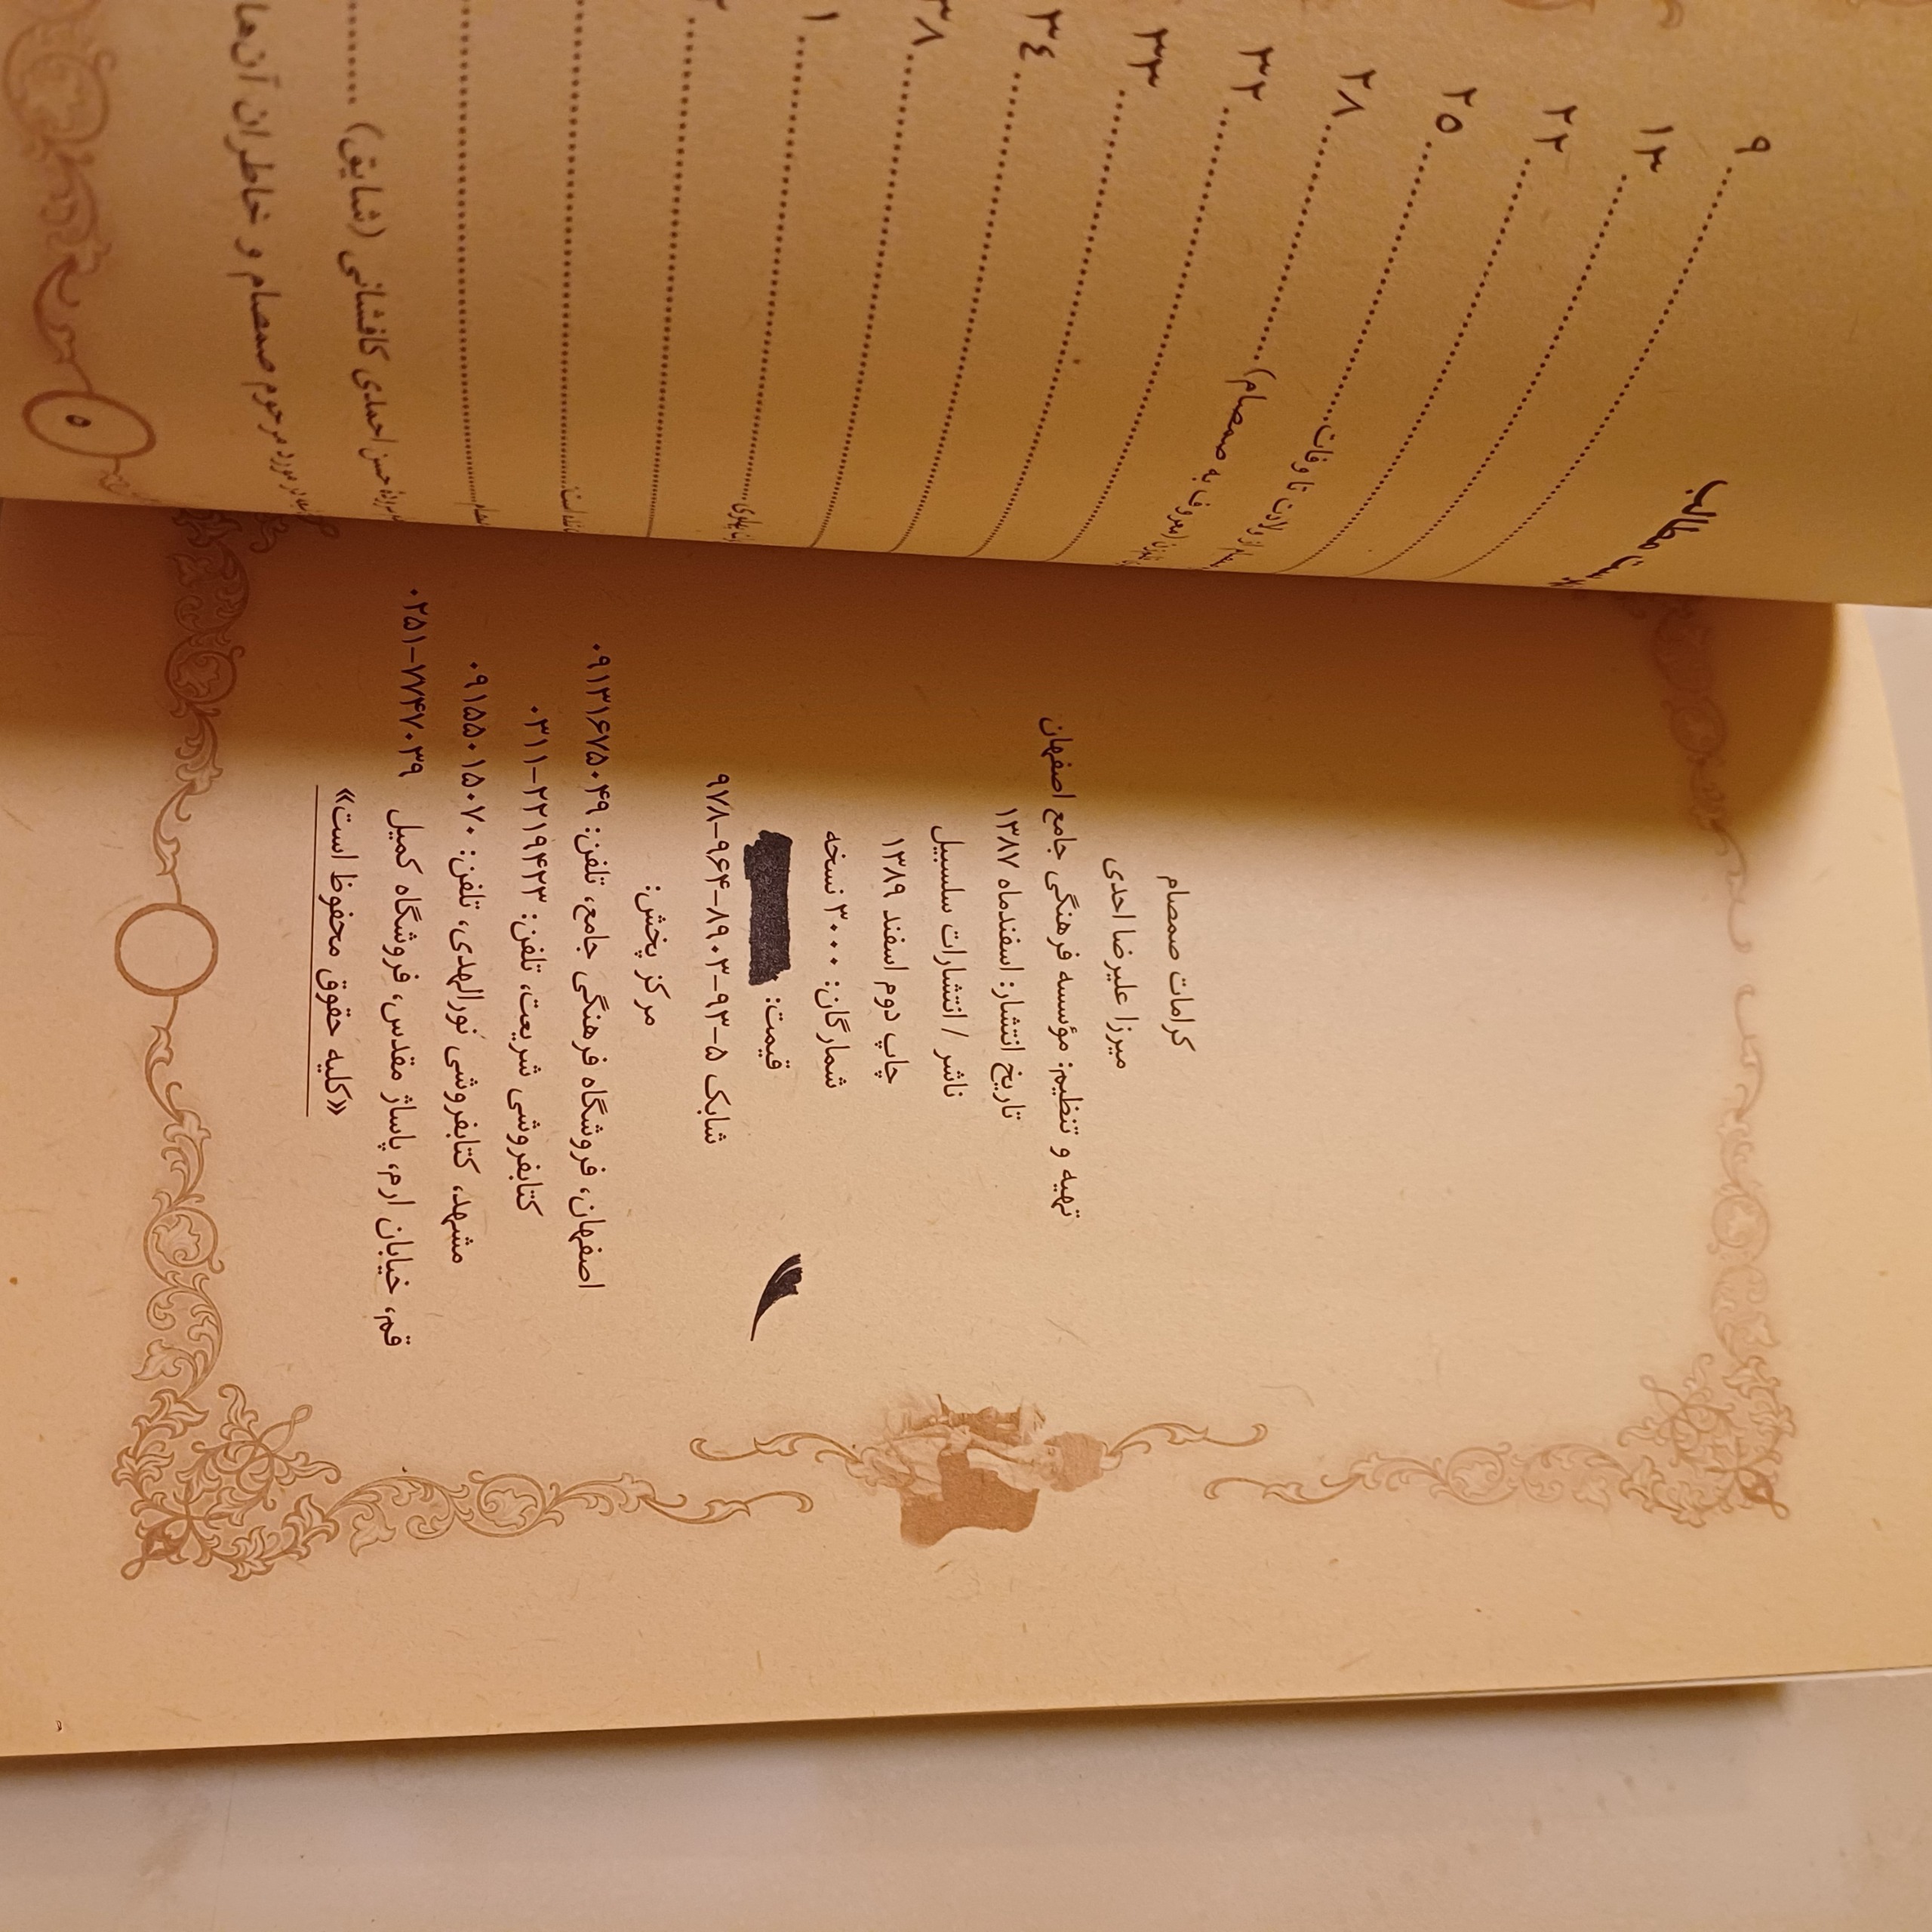 کرامات صمصام
میرزا علیرضا احدی
تهیه و تنظیم: مؤسسه فرهنگی جامع اصفهان
تاریخ انتشار: اسفندماه ۱۳۸۷
ناشر / انتشارات سلسبیل
چاپ دوم اسفند ۱۳۸۹
شمارگان: ۳۰۰۰ نسخه
قیمت:
شابک ۵-۹۳-۸۹۰۳-۹۶۴-۹۷۸
مرکز پخش:
اصفهان، فروشگاه فرهنگی جامع، تلفن: ۰۹۱۳۱۶۷۵۰۴۹
کتابفروشی شریعت، تلفن: ۲۲۱۹۴۲۳-۰۳۱۱
مشهد، کتابفروشی نورالهدی، تلفن: ۰۹۱۵۵۰۱۵۰۷۰
قم، خیابان ارم، پاساژ مقدس، فروشگاه کمیل ۷۷۴۷۰۳۹-۰۲۵۱
«کلیه حقوق محفوظ است»
مطالب
۹
۱۳
۲۲
۲۵
ولادت تا وفات ۲۸
معروف به صمصام) ۳۲
۳۳
۳٤
۳۸
حسن احمدی کافشانی (شایق)
مورد مرحوم صمصام و خاطران آن‌ها
۵